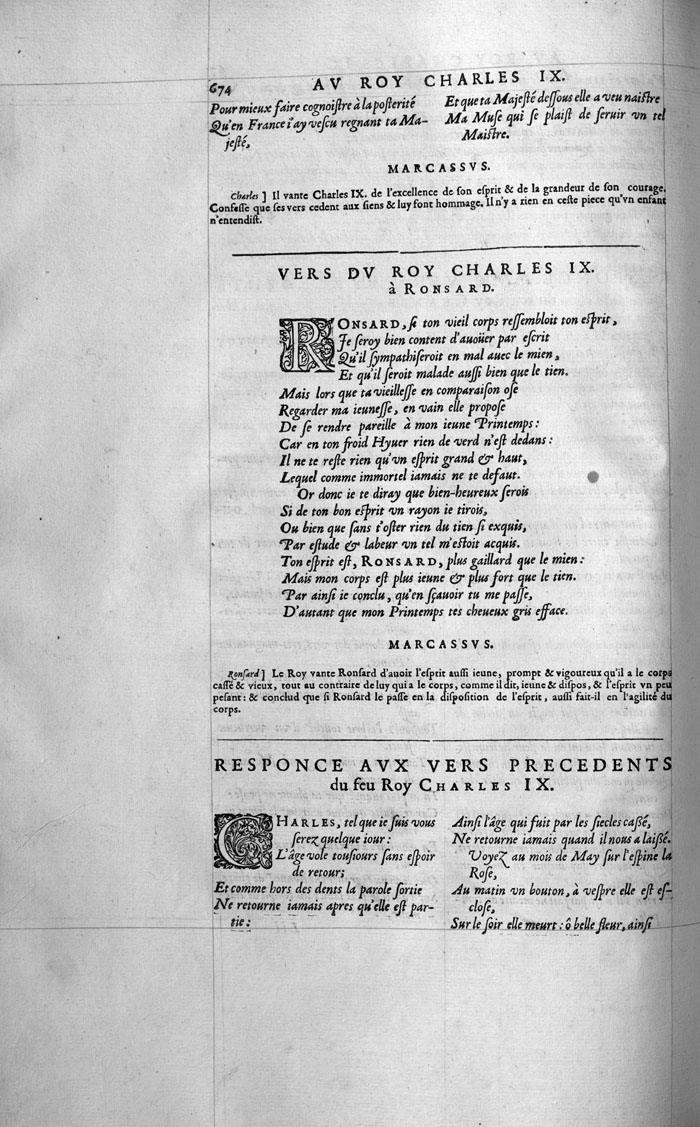 674
AV ROY CHARLES IX.
Pour mieux faire cognoistre à la posterité
Qu'en France i'ay vescu regnant ta Ma-
jesté,
Et que ta Majesté dessous elle a veu naistre
Ma Muse qui se plaist de seruir vn tel
Maistre.
MARCASSVS.
Charles ] Il vante Charles IX. de l'excellence de son esprit & de la grandeur de son courage.
Confesse que ses vers cedent aux siens & luy font hommage. Il n'y a rien en ceste piece qu'vn enfant
n'entendist.
VERS DV ROY CHARLES IX.
à RONSARD.
RONSARD, si ton vieil corps ressembloit ton esprit,
Je seroy bien content d'auoüer par escrit
Qu'il sympathiseroit en mal auec le mien,
Et qu'il seroit malade aussi bien que le tien.
Mais lors que ta vieillesse en comparaison ose
Regarder ma ieunesse, en vain elle propose
De se rendre pareille à mon ieune Printemps:
Car en ton froid Hyuer rien de verd n'est dedans:
Il ne te reste rien qu'vn esprit grand & haut,
Lequel comme immortel iamais ne te defaut.
Or donc ie te diray que bien-heureux serois
Si de ton bon esprit vn rayon ie tirois,
Ou bien que sans t'oster rien du tien si exquis,
Par estude & labeur vn tel m'estoit acquis.
Ton esprit est, RONSARD, plus gaillard que le mien:
Mais mon corps est plus ieune & plus fort que le tien.
Par ainsi ie conclu, qu'en sçauoir tu me passe,
D'autant que mon Printemps tes cheueux gris efface.
MARCASSVS.
Ronsard ] Le Roy vante Ronsard d'auoir l'esprit aussi ieune, prompt & vigoureux qu'il a le corps
cassé & vieux, tout au contraire de luy qui a le corps, comme il dit, ieune & dispos, & l'esprit vn peu
pesant: & conclud que si Ronsard le passe en la disposition de l'esprit, aussi fait-il en l'agilité du
corps.
RESPONCE AVX VERS PRECEDENTS
du feu Roy CHARLES IX.
CHARLES, tel que ie suis vous
serez quelque iour:
L'âge vole tousiours sans espoir
de retour;
Et comme hors des dents la parole sortie
Ne retourne iamais apres qu'elle est par-
tie:
Ainsi l'âge qui fuit par les siecles cassé,
Ne retourne iamais quand il nous a laissé.
Voyez au mois de May sur l'espine la
Rose,
Au matin vn bouton, à vespre elle est es-
close,
Sur le soir elle meurt: ô belle fleur, ainsi